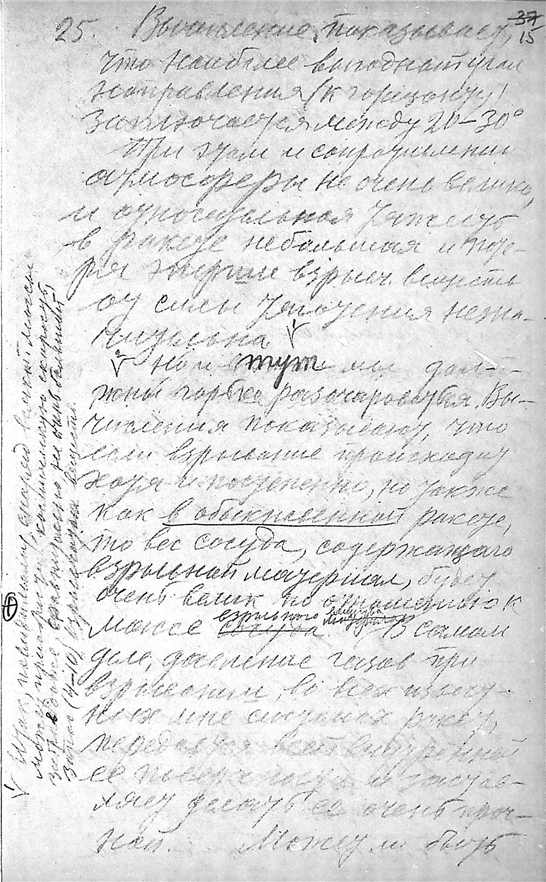 25. Вычисление показывает, 37
15
что наиболее выгодный угол
направления (к горизонту)
заключается между 20–30°
При этом и сопротивление
атмосферы не очень велико,
и относительная тяжесть
в ракете небольшая и поте-
ря энергии взрыва веществ
от силы тяготения незна-
чительна V
V Но и тут мы дол-
жны горько разочароваться. Вы-
числения показывают, что
если взрывание происходит
хотя и постепенно, но также
как в обыкновенной ракете,
то вес сосуда, содержащаго
взрывной материал, будет
очень велик по отношению к
массе взрывного материала. В самом
деле, давление газов при
взрывании, во всех извест-
ных мне ракет,
передается всей внутренней
ее поверхности и застав-
ляет делать ее очень проч-
ной. Может ли быть
V Итак, повидимому, снаряд
может приобрести скорость,
запас не очень большой
запас (4–10) взрывчатых веществ